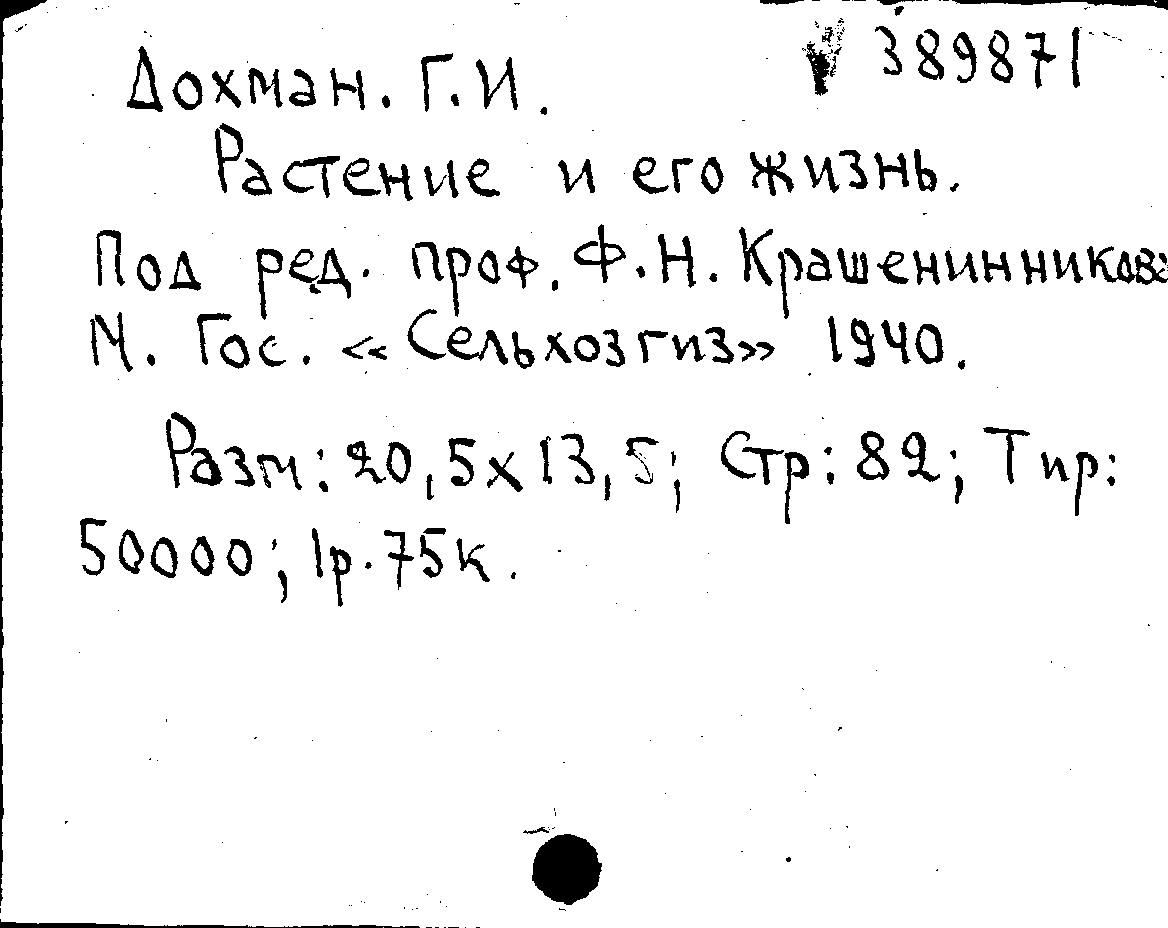 389871
Дохман. Г.И.
Растение и его жизнь.
Под ред. проф. Ф.Н. Крашенинникова
М. Гос. «Сельхозгиз» 1940.
Разм: 20,5х13,5; Стр: 82; Тир:
50000; 1р.75к.